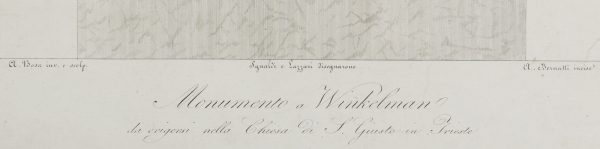 A. Bosa inv. e scolp.
Sgualdi e Lazzari disegnarono
A. Bernatti incise
Monumento a Winkelman
da erigersi nella Chiesa di S. Giusto in Trieste